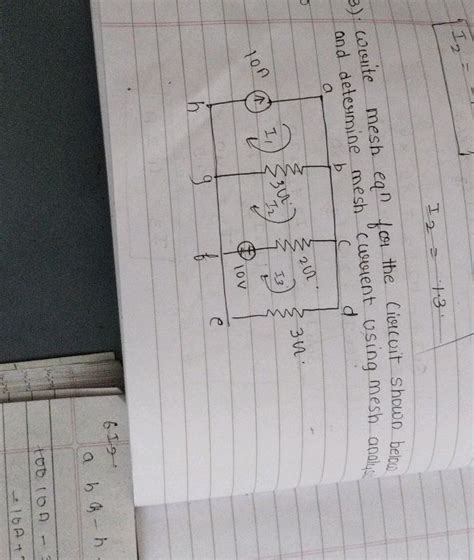 I2 =
I2 = 13.
3). write mesh eqn for the circuit shown below
and determine mesh current using mesh analys
a b c d
10A I1 3Ω I2 2Ω I3 3Ω
10V
h g f e
6I2
a b g - h
100 10A -
- 10A +